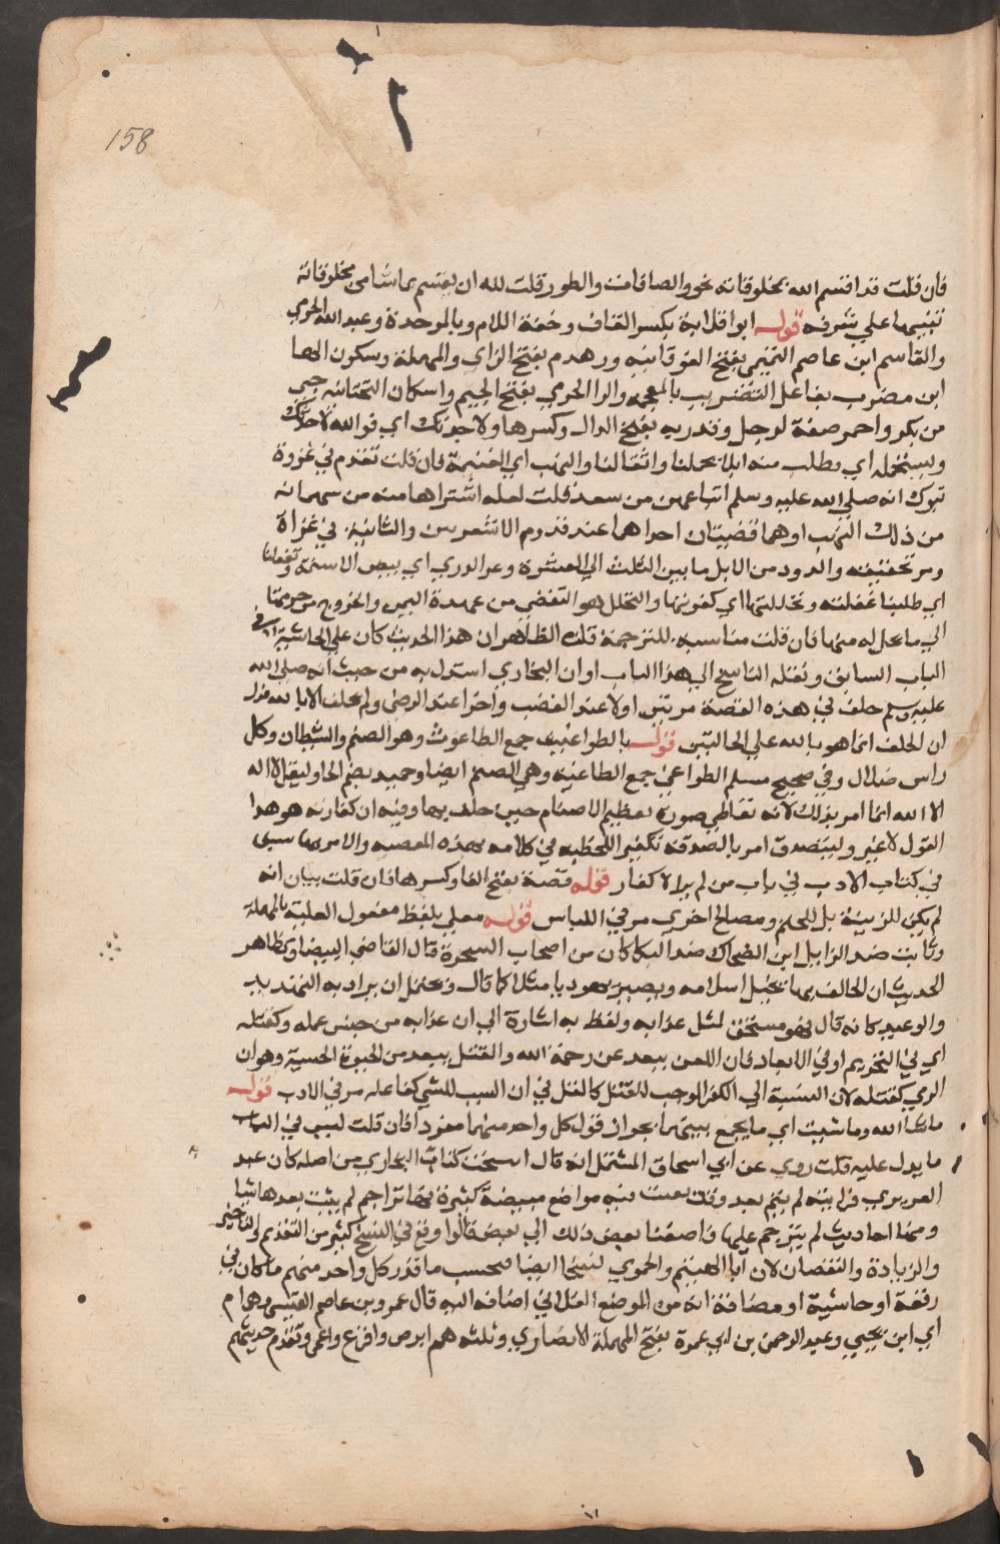 158
فان قلت قد اقسم الله بمخلوقاته نحو والصافات والطور قلت لله ان يقسم بما شا من مخلوقاته
تنبيها على شرفه قوله ابو قلابة بكسر القاف وخفة اللام وبالموحدة وعبد الله
والقاسم ابن عاصم التميمي بفتح الفوقانيه وزهدم بفتح الزاي والمهملة وسكون الها
ابن مضرب بفاعل التضريب بالمعجمه والرا الجرمي بفتح الجيم واسكان التحتانيه
من بكر واحمر صفة لرجل وقذر به بفتح الذال وكسرها ولاحدثنك اي فوالله لاحدثنك
ونستحمله اي نطلب منه ابلا تحملنا واثقالنا والنهب اي الغنيمة فان قلت تقدم في غزوة
تبوك انه صلى الله عليه وسلم ابتاعهن من سعد قلت لعله اشتراها منه من سهمانه
من ذلك النهب او هما قضيتان احداهما عند قدوم الاشعريين والثانية في غزاة
ومر تحقيقه والذود من الابل ما بين الثلث الى العشرة وغر الذري اي بيض الاسنمة وتغفلنا
اي طلبنا غفلته وتحللتها اي كفرتها والتحلل هو التفصي من عهدة اليمين والخروج من حرمتها
الى ما يحل له منها فان قلت ما مناسبته للترجمة قلت الظاهر ان هذا الحديث كان على الحاشية في
الباب السابق ونقله الناسخ الى هذا الباب او ان البخاري استدل به من حيث انه صلى الله
عليه وسلم حلف في هذه القصة مرتين اولا عند الغضب واخرا عند الرضى ولم يحلف الا بالله فدل
ان الحلف انما هو بالله على الحالتين قوله بالطواغيت جمع الطاغوت وهو الصنم والشيطان وكل
راس ضلال وفي صحيح مسلم الطواغي جمع الطاغية وهي الصنم ايضا وحميد بضم الحا وليقل لا اله
الا الله انما امر بذلك لانه تعاطى صورة تعظيم الاصنام حين حلف بها وفيه ان كفارته هو هذا
القول لا غير وليتصدق امر بالصدقة تكفيرا للخطيه في كلامه بهذه المعصيه والامر بها سبق
في كتاب الادب في باب من لم ير الاكفار قوله فصه بفتح الفا وكسرها فان قلت بيان انه
لم يكن للزينة بل للختم ومصالح اخرى مر في اللباس قوله معلي بلفظ مفعول العلية بالمهملة
وثابت ضد الزايل ابن الضحاك ضد البكا كان من اصحاب الشجرة قال القاضي البيضاوي ظاهر
الحديث ان الحالف بها يختل اسلامه ويصير يهوديا مثلا كما قال ويحتمل ان يراد به التهديد
والوعيد كانه قال فهو مستحق لمثل عذابه ولفظ به اشارة الى ان عذابه من جنس عمله وكقتله
اي في التحريم او في الابعاد فان اللعن يبعد عن رحمة الله والقتل يبعد من الحيوة الحسية وهو ان
الرمي كقتله لان النسبة الى الكفر الموجب للقتل كالقتل في ان السبب للشي كفاعله مر في الادب قوله
ما شا الله وما شيت اي ما يجمع بينهما بجواز قول كل واحد منهما مفردا فان قلت ليس في الباب
ما يدل عليه قلت روي عن ابي اسحاق المستملي انه قال انتسخت كتاب البخاري من اصله كان عند
الفربري فرايته لم يتم بعد وقد بقيت فيه مواضع مبيضة كثيرة منها تراجم لم يثبت بعدها شيا
ومنها احاديث لم يترجم عليها فاضفنا بعض ذلك الى بعض قالوا وقع في النسخ كثير من التقديم والتاخير
والزيادة والنقصان لان ابا الهيثم والحموي نسخا ايضا فبحسب ما قدر كل واحد منهم ما كان في
رقعة او حاشية او مضافة انه من الموضع الفلاني اضافه اليه قال عمرو بن عاصم القيسي وهمام
اي ابن يحيى وعبد الرحمن بن ابي عمرة بفتح المهملة الانصاري وثلثه هم ابرص واقرع واعمى وتقدم حديثهم